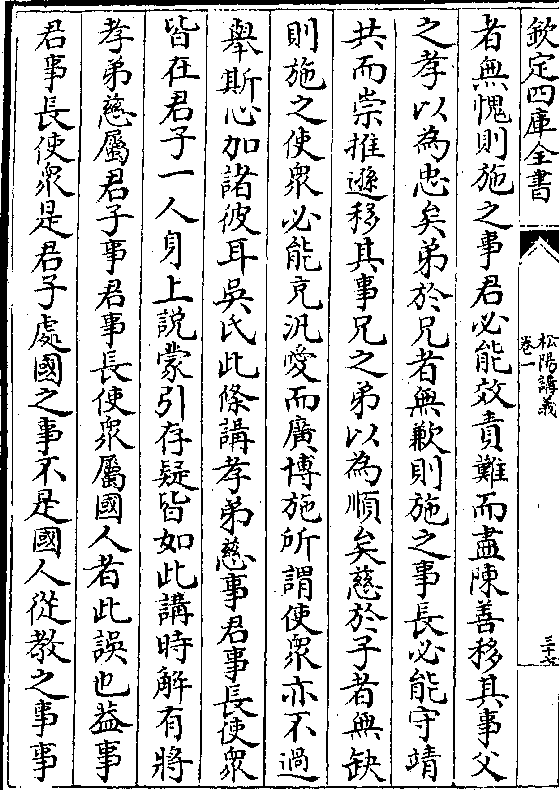 欽定四庫全書
松陽講義
卷一
三十七
者無愧則施之事君必能效責難而盡陳善移其事父
之孝以為忠矣弟於兄者無歉則施之事長必能守靖
共而崇推遜移其事兄之弟以為順矣慈於子者無缺
則施之使眾必能克汎愛而廣博施所謂使眾亦不過
舉斯心加諸彼耳吳氏此條講孝弟慈事君事長使眾
皆在君子一人身上說蒙引存疑皆如此講時解有將
孝弟慈屬君子事君事長使眾屬國人者此誤也葢事
君事長使眾是君子處國之事不是國人從教之事事